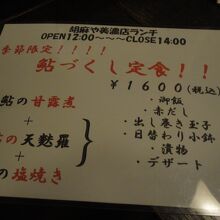 胡麻や美濃店ランチ
OPEN12:00～～～CLOSE14:00
季節限定!!!!
鮎づくし定食!!
¥1600(税込)
鮎の甘露煮
+
の天麩羅
+
の塩焼き
・御飯
・赤だし
・出し巻き玉子
・日替わり小鉢
・漬物
・デザート